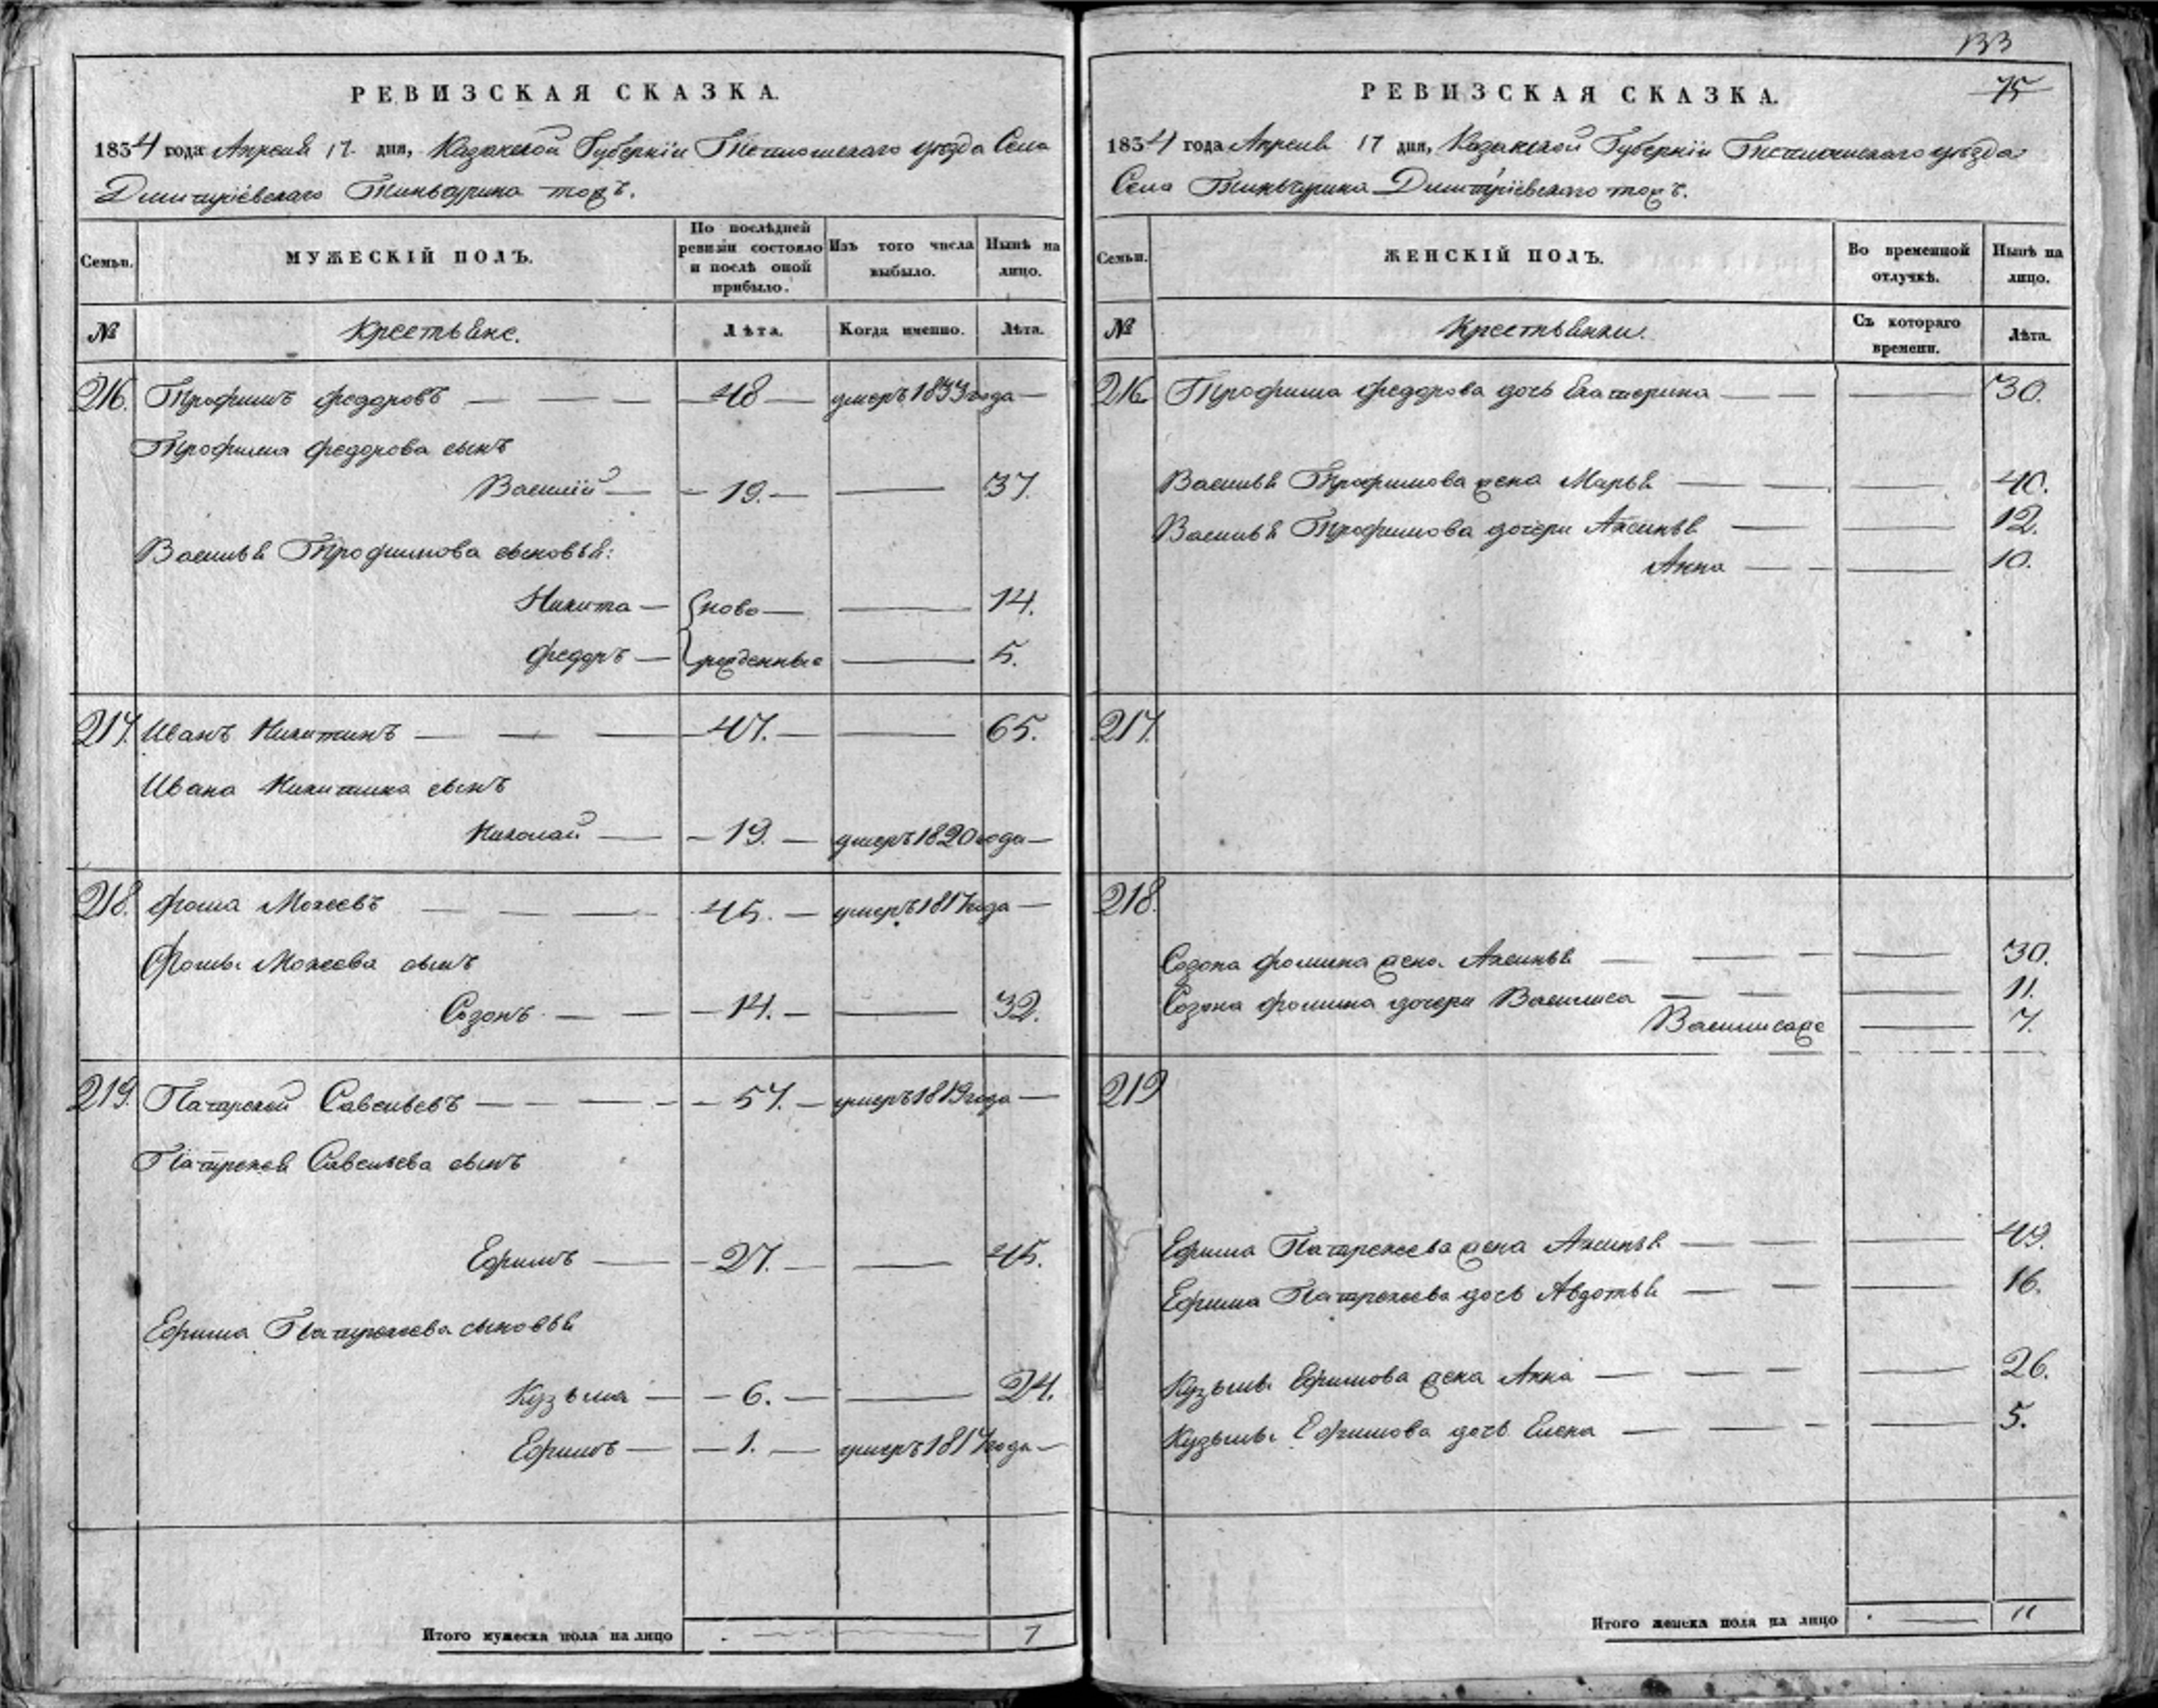 РЕВИЗСКАЯ СКАЗКА.
1834 года Апреля 17. дня, Казанской Губернiи Тетюшскаго уѣзда Села
Дмитрiевскаго Тинчурина тожъ.
Семьи.
МУЖЕСКIЙ ПОЛЪ.
По послѣдней ревизiи состояло и послѣ оной прибыло.
Изъ того числа выбыло.
Нынѣ на лицо.
№
Крестьяне.
Лѣта.
Когда именно.
Лѣта.
216. Трофимъ Федоровъ — 48 — умеръ 1833 года —
Трофима Федорова сынъ
Василiй — 19. — 37.
Василья Трофимова сыновья:
Никита — ново — 14.
Федоръ — рожденные — 5.
217. Иванъ Никитинъ — 47. — 65.
Ивана Никитина сынъ
Николай — 19. — умеръ 1820 года —
218. Фома Мокеевъ — 45. — умеръ 1817 года —
Фомы Мокеева сынъ
Созонъ — 14. — 32.
219. Патрекей Савельевъ — 57. — умеръ 1819 года —
Патрекея Савельева сынъ
Ефимъ — 27. — 45.
Ефима Патрекеева сыновья
Кузьма — 6. — 24.
Ефимъ — 1. — умеръ 1817 года —
Итого мужеска пола на лицо 7
133
75
РЕВИЗСКАЯ СКАЗКА.
1834 года Апреля 17 дня, Казанской Губернiи Тетюшскаго уѣзда
Села Тинчурина Дмитрiевскаго тожъ.
Семьи.
ЖЕНСКIЙ ПОЛЪ.
Во временной отлучкѣ.
Нынѣ на лицо.
№
Крестьянки.
Съ котораго времени.
Лѣта.
216. Трофима Федорова дочь Екатерина — 30.
Василья Трофимова жена Марья — 40.
Василья Трофимова дочери Аксинья — 12.
Анна — 10.
217.
218.
Созона Фомина жена Аксинья — 30.
Созона Фомина дочери Василиса — 11.
Василиса же — 7.
219
Ефима Патрекеева жена Аксинья — 49.
Ефима Патрекеева дочь Авдотья — 16.
Кузьмы Ефимова жена Анна — 26.
Кузьмы Ефимова дочь Елена — 5.
Итого женска пола на лицо — 11